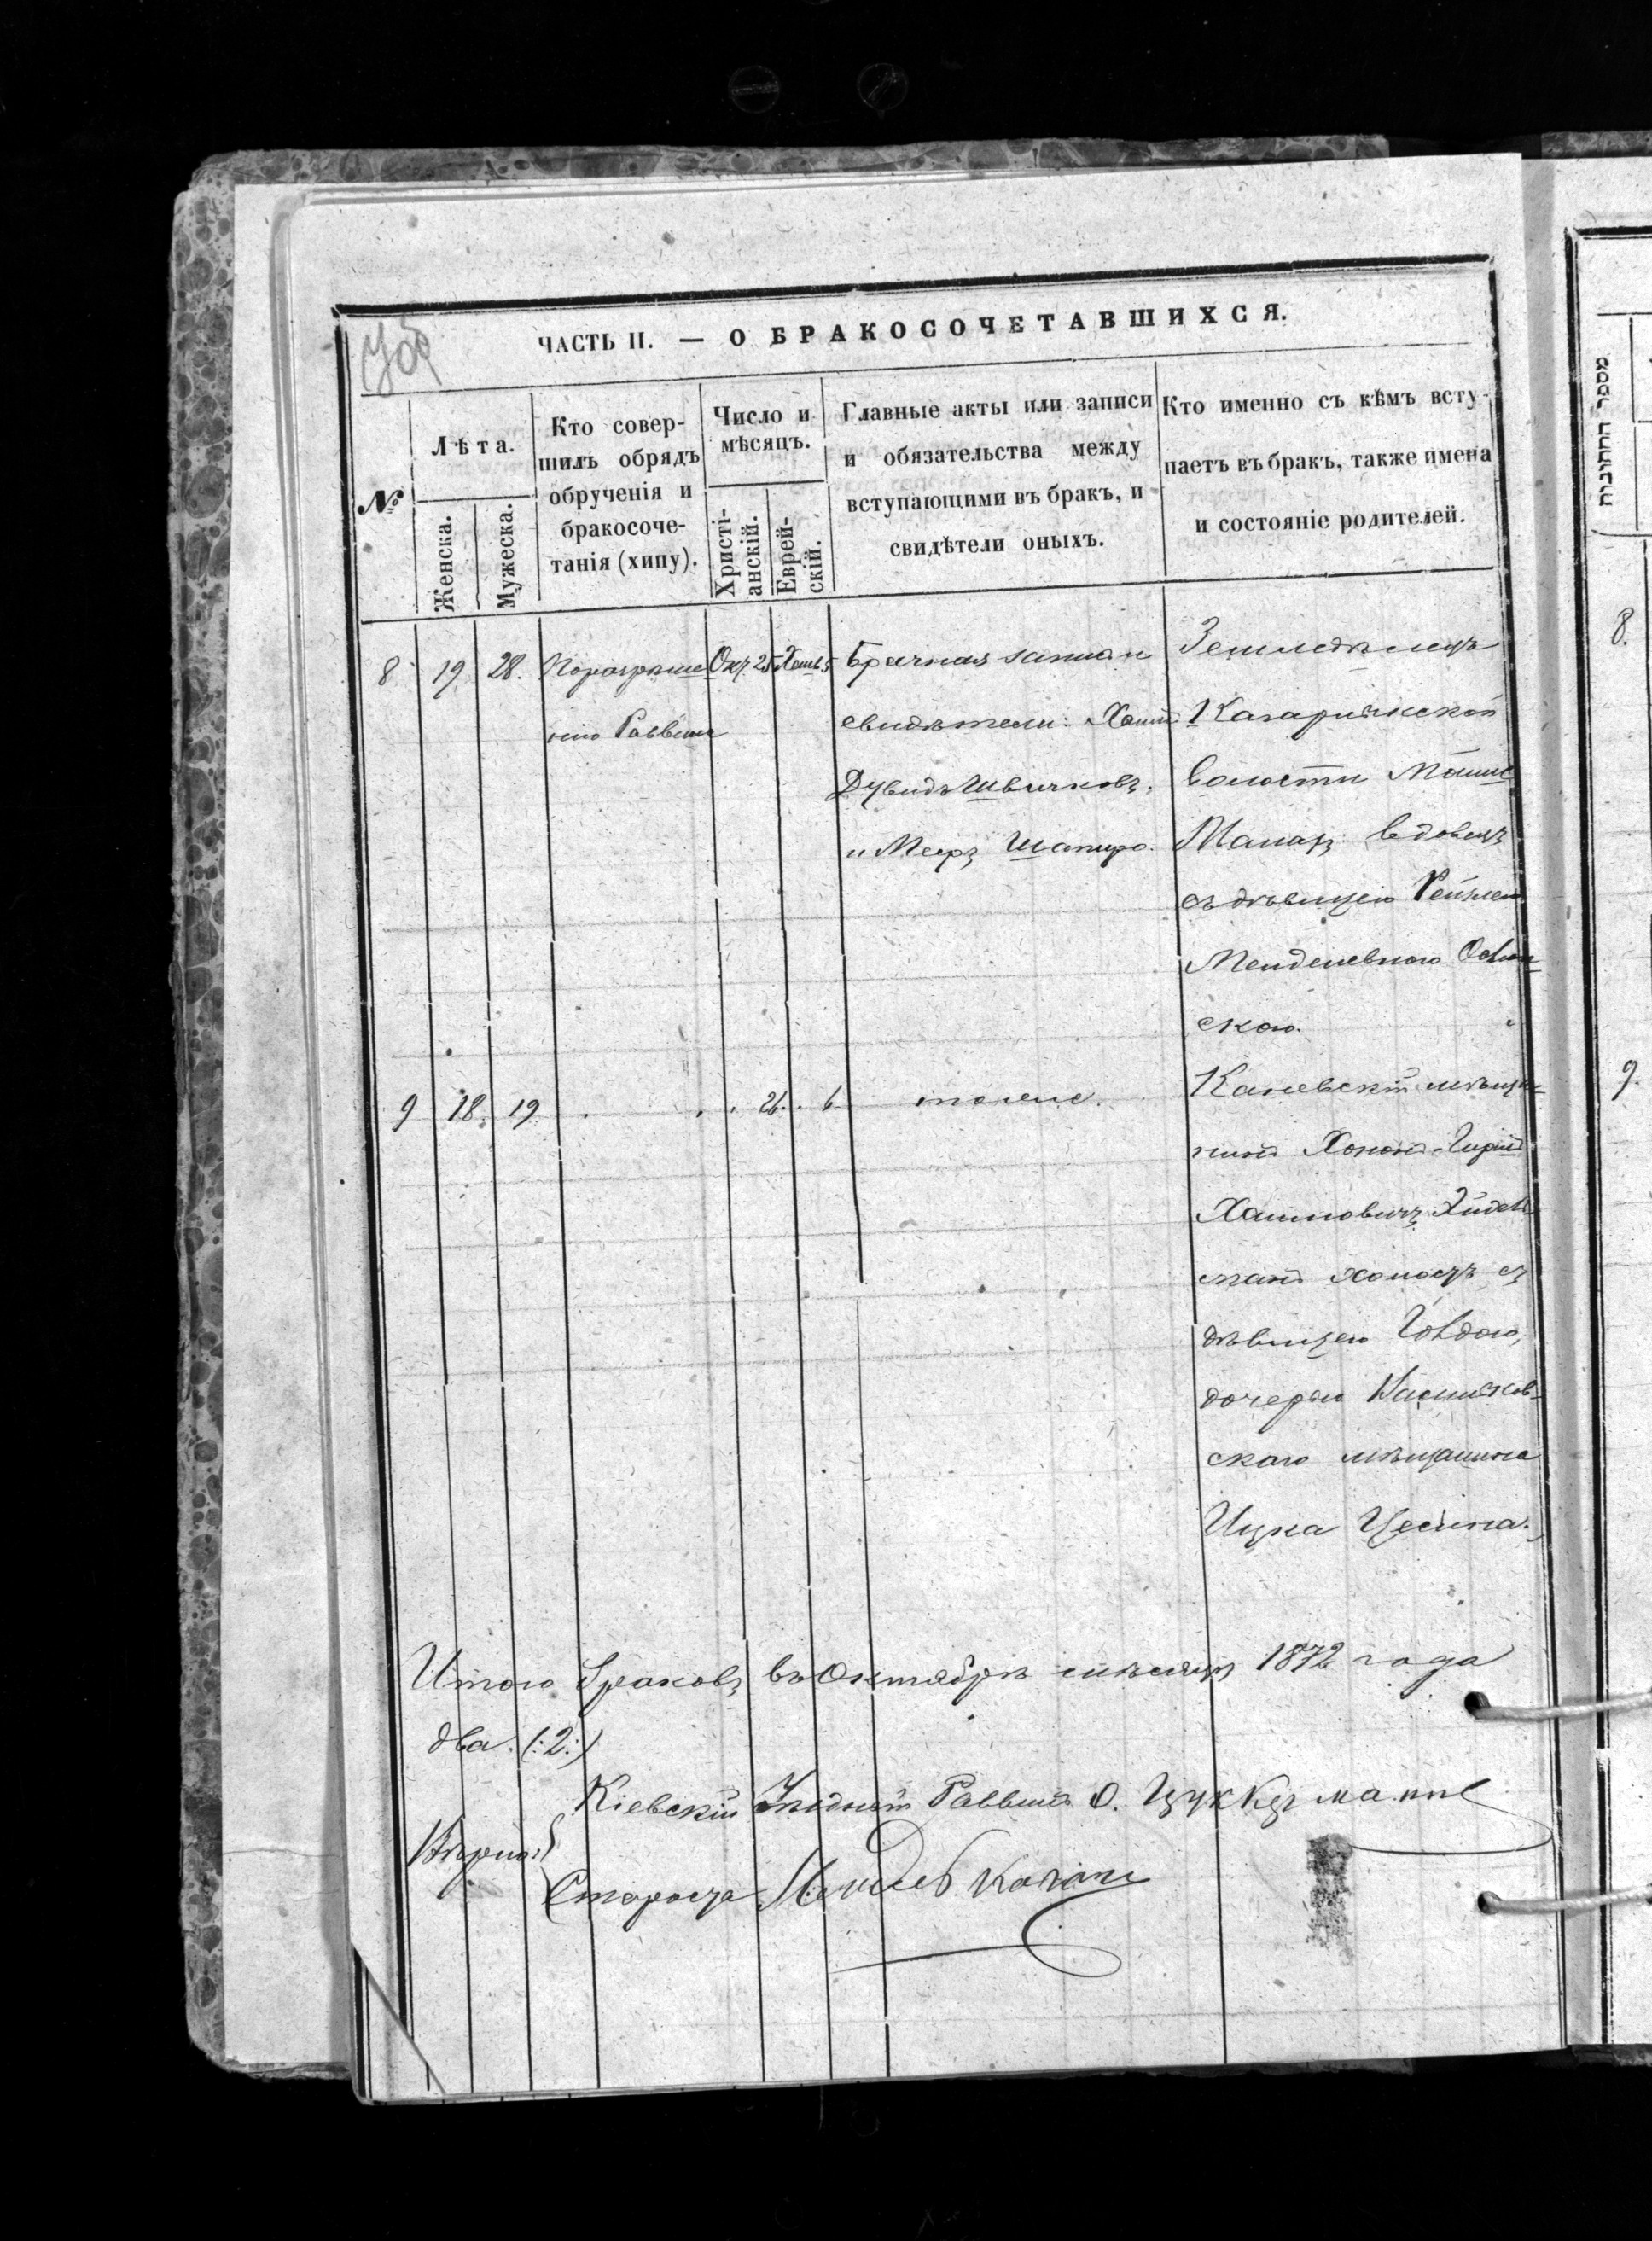 ЧАСТЬ II. — О БРАКОСОЧЕТАВШИХСЯ.
№
Лѣта.
Женска.
Мужеска.
Кто совер-
шилъ обрядъ
обрученія и
бракосоче-
танія (хипу).
Число и
мѣсяцъ.
Христі-
анскій.
Еврей-
скій.
Главные акты или записи
и обязательства между
вступающими въ бракъ, и
свидѣтели оныхъ.
Кто именно съ кѣмъ всту-
паетъ въ бракъ, также имена
и состояніе родителей.
8 19 28. Окт. 25 Хешв. 5
нію Раввина
Брачная запись и
свидѣтели: Хаимъ
Дувидъ
и Мееръ Шапиро.
Земледѣлецъ
Кагарлыкской
волости
вдовецъ
съ дѣвицею Рейзлею
Менделевною
скою.
9 18. 19. 26. 6. тоже.
Каневскій мѣща-
нинъ Хононъ-Гершъ
Хаимовичъ
манъ холостъ съ
дѣвицею Говдою,
дочерью
скаго мѣщанина
Ицка
Итого браковъ въ Октябрѣ мѣсяцѣ 1872 года
два (:2:)
Кіевскій Уѣздный Раввинъ О. Цуккерманъ
Вѣрно:
Староста Мендель
מספר החתונות
8.
9.